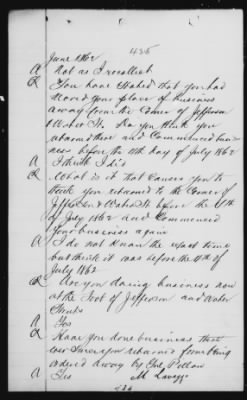 436
June 1862
A Not as I recollect
Q You have stated that you had
moved your place of business
away from the Corner of Jefferson
& Water St. Do you think you
returned there and Commenced busi-
ness before the 11th day of July 1862
A I think I did
Q What is it that causes you to
think you returned to the Corner of
Jefferson & Water St before the 11th
of July 1862 and Commenced
your business again
A I do not know the exact time
but think it was before the 11th of
July 1862
Q Are you doing business now
at the foot of Jefferson and Water
Streets
A Yes
Q Have you done business there
ever since you returned from being
ordered away by Gnl
A Yes M
436